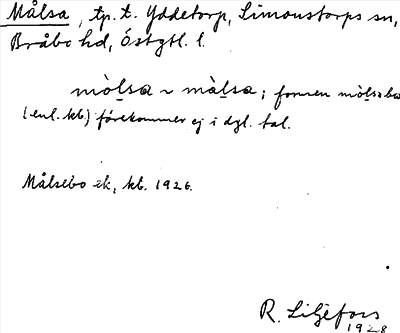 Målsa, tp. t. Yddetorp, Simonstorps sn,
Bråbo hd, Östgtl. l.
mòlsa ~ màlsa; formen mòlsabo
(enl. kb.) förekommer ej i dgl. tal.
Målsebo ek, kt. 1926.
R. Liljefors
1928